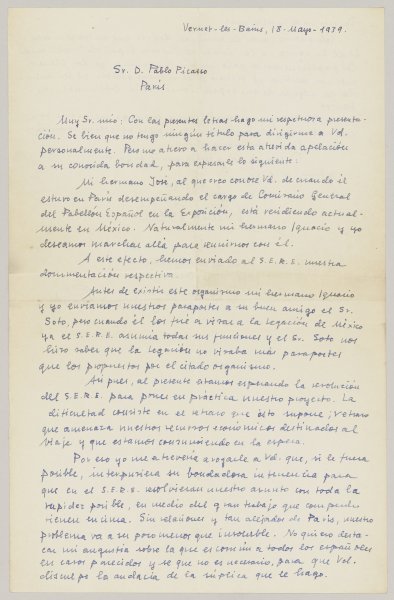 Vernet-les-Bains, 18-Mayo-1939.
Sr. D. Pablo Picasso
Paris
Muy Sr. mio: Con las presentes letras hago mi respetuosa presenta-
ción. Se bien que no tengo ningún título para dirigirme a Vd.
personalmente. Pero me atrevo a hacer esta atrevida apelación
a su conocida bondad, para expresarle lo siguiente:
Mi hermano José, al que creo conoce Vd. de cuando él
estuvo en París desempeñando el cargo de Comisario General
del Pabellón Español en la Exposición, está residiendo actual-
mente en México. Naturalmente mi hermano Ignacio y yo
deseamos marchar allá para reunirnos con él.
A este efecto, hemos enviado al S.E.R.E. nuestra
documentación respectiva.
Antes de existir este organismo mi hermano Ignacio
y yo enviamos nuestros pasaportes a su buen amigo el Sr.
Soto, pero cuando él los fué a visar a la legación de México
ya el S.E.R.E. asumía todas sus funciones y el Sr. Soto nos
hizo saber que la legación no visaba más pasaportes
que los propuestos por el citado organismo.
Así pues, al presente estamos esperando la resolución
del S.E.R.E. para poner en práctica nuestro proyecto. La
dificultad consiste en el retraso que esto supone; retraso
que amenaza nuestros recursos económicos destinados al
viaje y que estamos consumiendo en la espera.
Por eso yo me atrevería a rogarle a Vd. que, si le fuera
posible, interpusiera su bondadosa influencia para
que en el S.E.R.E. resolvieran nuestro asunto con toda la
rapidez posible, en medio del gran trabajo que comprendo
tienen encima. Sin relaciones y tan alejados de París, nuestro
problema va a ser poco menos que insoluble. No quiero desta-
car mi angustia sobre la que es común a todos los españoles
en casos parecidos y se que no es necesario, para que Vd.
disculpe la audacia de la súplica que le hago.